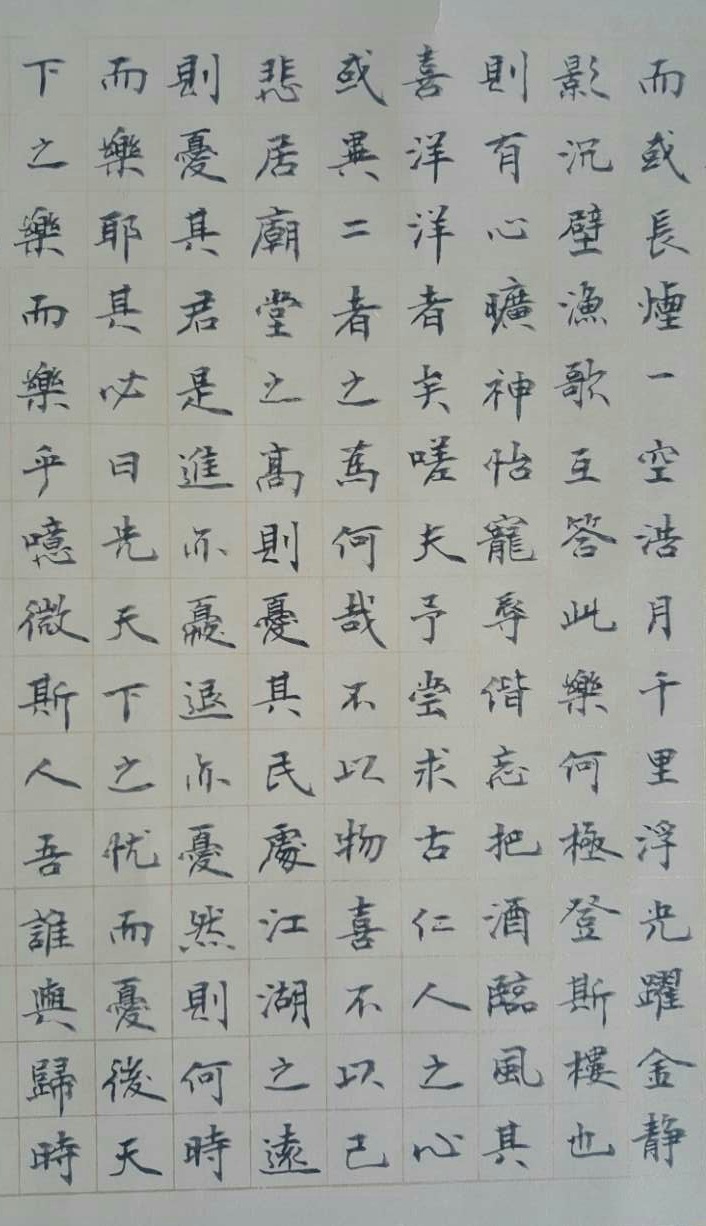 而或長煙一空浩月千里浮光躍金静
影沉壁漁歌互答此樂何極登斯樓也
則有心曠神怡寵辱偕忘把酒臨風其
喜洋洋者矣嗟夫予嘗求古仁人之心
或異二者之為何哉不以物喜不以己
悲居廟堂之高則憂其民處江湖之遠
則憂其君是進亦憂退亦憂然則何時
而樂耶其必曰先天下之忧而憂後天
下之樂而樂乎噫微斯人吾誰與歸時